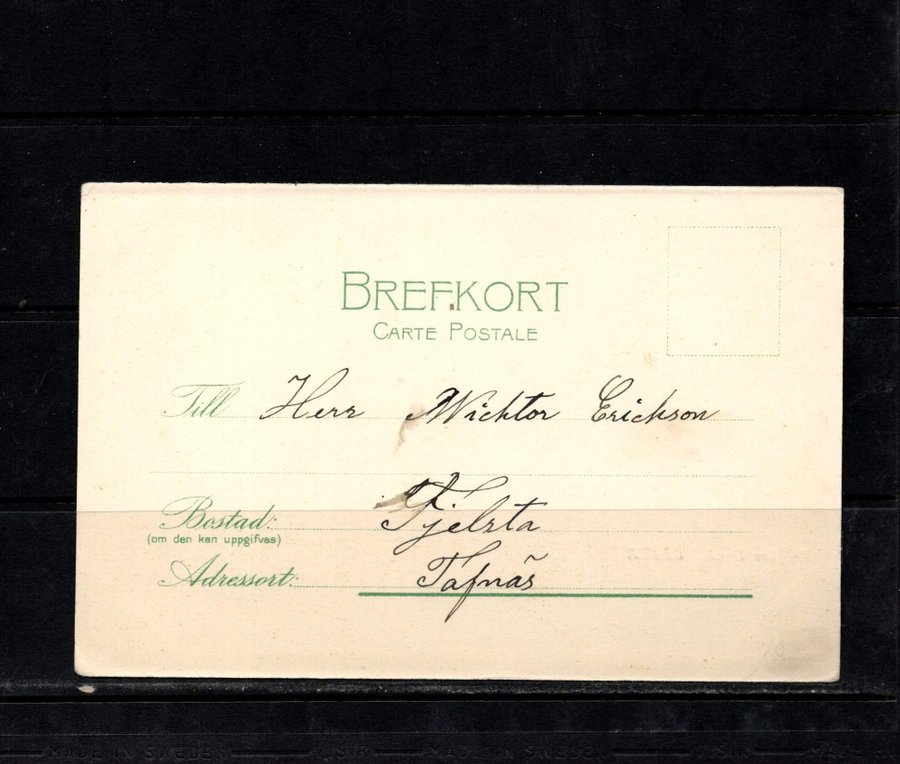 BREFKORT
CARTE POSTALE
Till Herr Wicktor Erickson
Bostad: Fjelsta
(om den kan uppgifvas)
Adressort: Tafnäs
MADE IN SWEDEN MADE IN SWEDEN